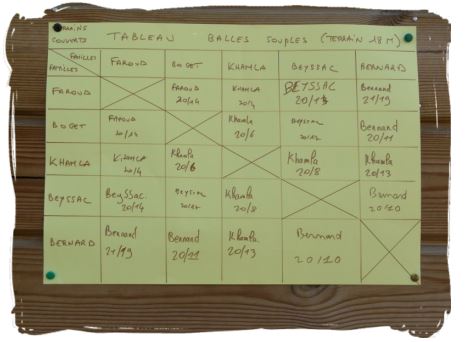 TERRAINS
COUVERTS TABLEAU BALLES SOUPLES (TERRAIN 18 M)
FAMILLES FAROUD BOGET KHAMLA BEYSSAC BERNARD
FAMILLES
FAROUD FAROUD KHAMLA BEYSSAC Bernard
20/14 20/4 21/19
BOGET FAROUD Khamla BEYSSAC Bernard
20/14 20/6 20/11
KHAMLA KHAMLA Khamla Khamla Khamla
20/4 20/6 20/8 20/13
BEYSSAC BEYSSAC BEYSSAC Khamla Bernard
20/14 20/8 20/10
BERNARD Bernard Bernard Khamla Bernard
21/19 20/11 20/13 20/10